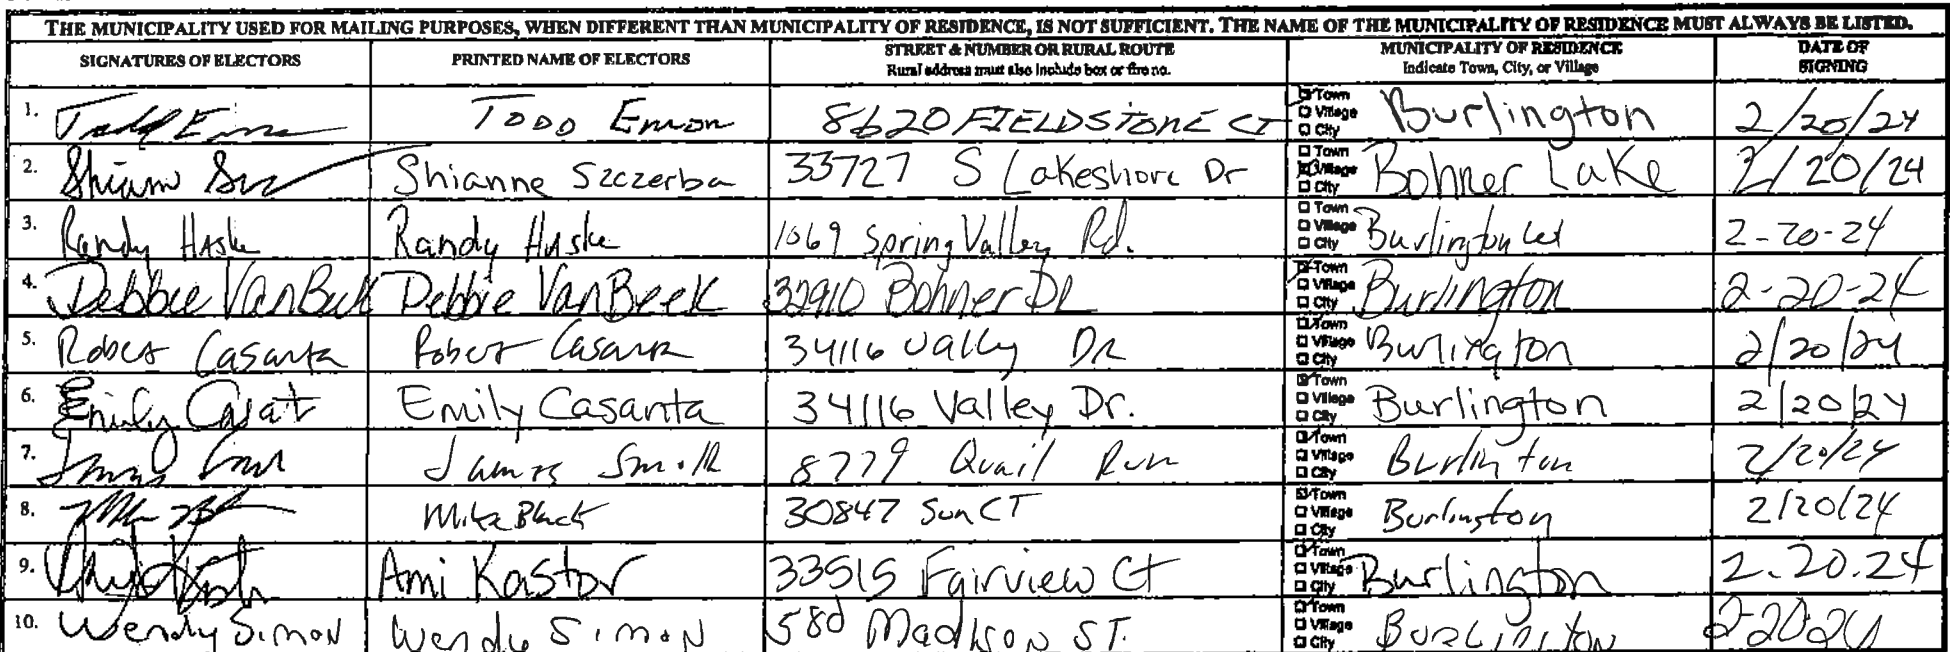 THE MUNICIPALITY USED FOR MAILING PURPOSES, WHEN DIFFERENT THAN MUNICIPALITY OF RESIDENCE, IS NOT SUFFICIENT. THE NAME OF THE MUNICIPALITY OF RESIDENCE MUST ALWAYS BE LISTED.
SIGNATURES OF ELECTORS PRINTED NAME OF ELECTORS STREET & NUMBER OR RURAL ROUTE Rural address must also include box or fire no. MUNICIPALITY OF RESIDENCE Indicate Town, City, or Village DATE OF SIGNING
1. TODD Emon 8620 FIELDSTONE CT Town Village City Burlington 2/20/24
2. Shianne Szczerba 33727 S Lakeshore Dr Town Village City Bohner Lake 2/20/24
3. Randy Haske Randy Haske 1069 Spring Valley Rd. Town Village City Burlington 2-20-24
4. Debbie VanBeek Debbie VanBeek 32910 Bohner DR Town Village City Burlington 2-20-24
5. Robert Casanta Robert Casanta 34116 Vally DR Town Village City Burlington 2/20/24
6. Emily Emily Casanta 34116 Valley Dr. Town Village City Burlington 2/20/24
7. James Smith 8779 Quail Run Town Village City Burlington 2/20/24
8. Mike Black 30847 Sun CT Town Village City Burlington 2/20/24
9. Ami Kastor 33515 Fairview Ct Town Village City Burlington 2.20.24
10. Wendy Simon Wendy Simon 580 Madison ST. Town Village City Burlington 2-20-24